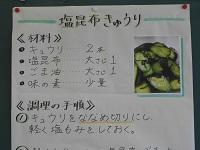 塩昆布きゅうり
《材料》
・キュウリ 2本
・塩昆布 大さじ1
・ごま油 大さじ1
・味の素 少量
《調理の手順》
①キュウリをななめ切りにし、
軽く塩もみとしておく。